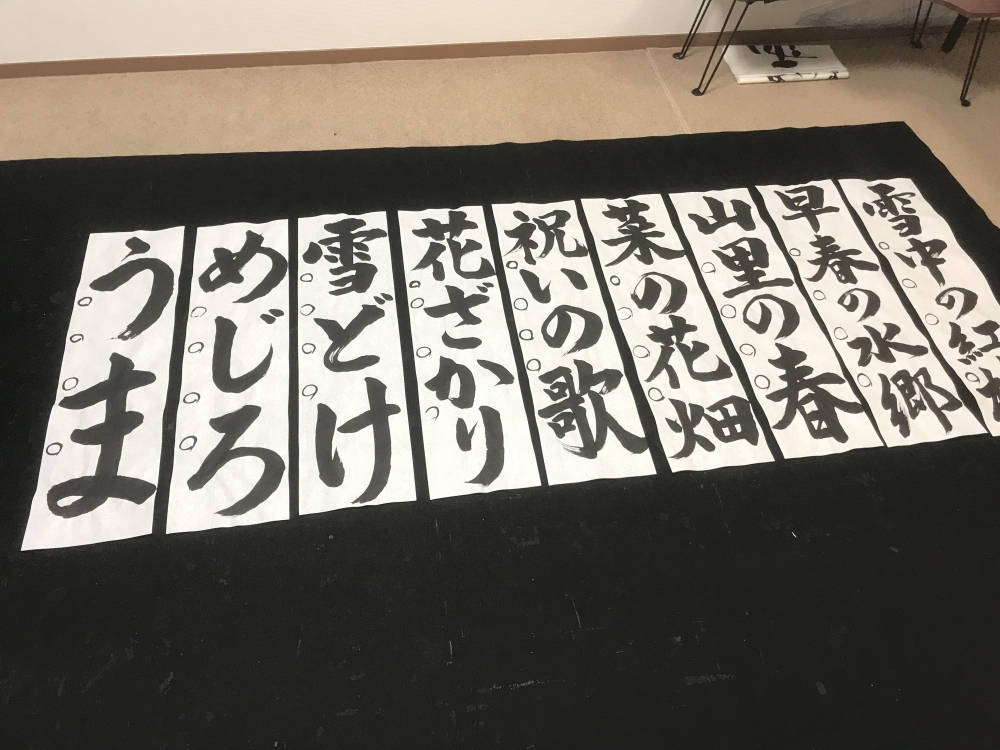 うま
めじろ
雪どけ
花ざかり
祝いの歌
菜の花畑
山里の春
早春の水郷
雪中の紅